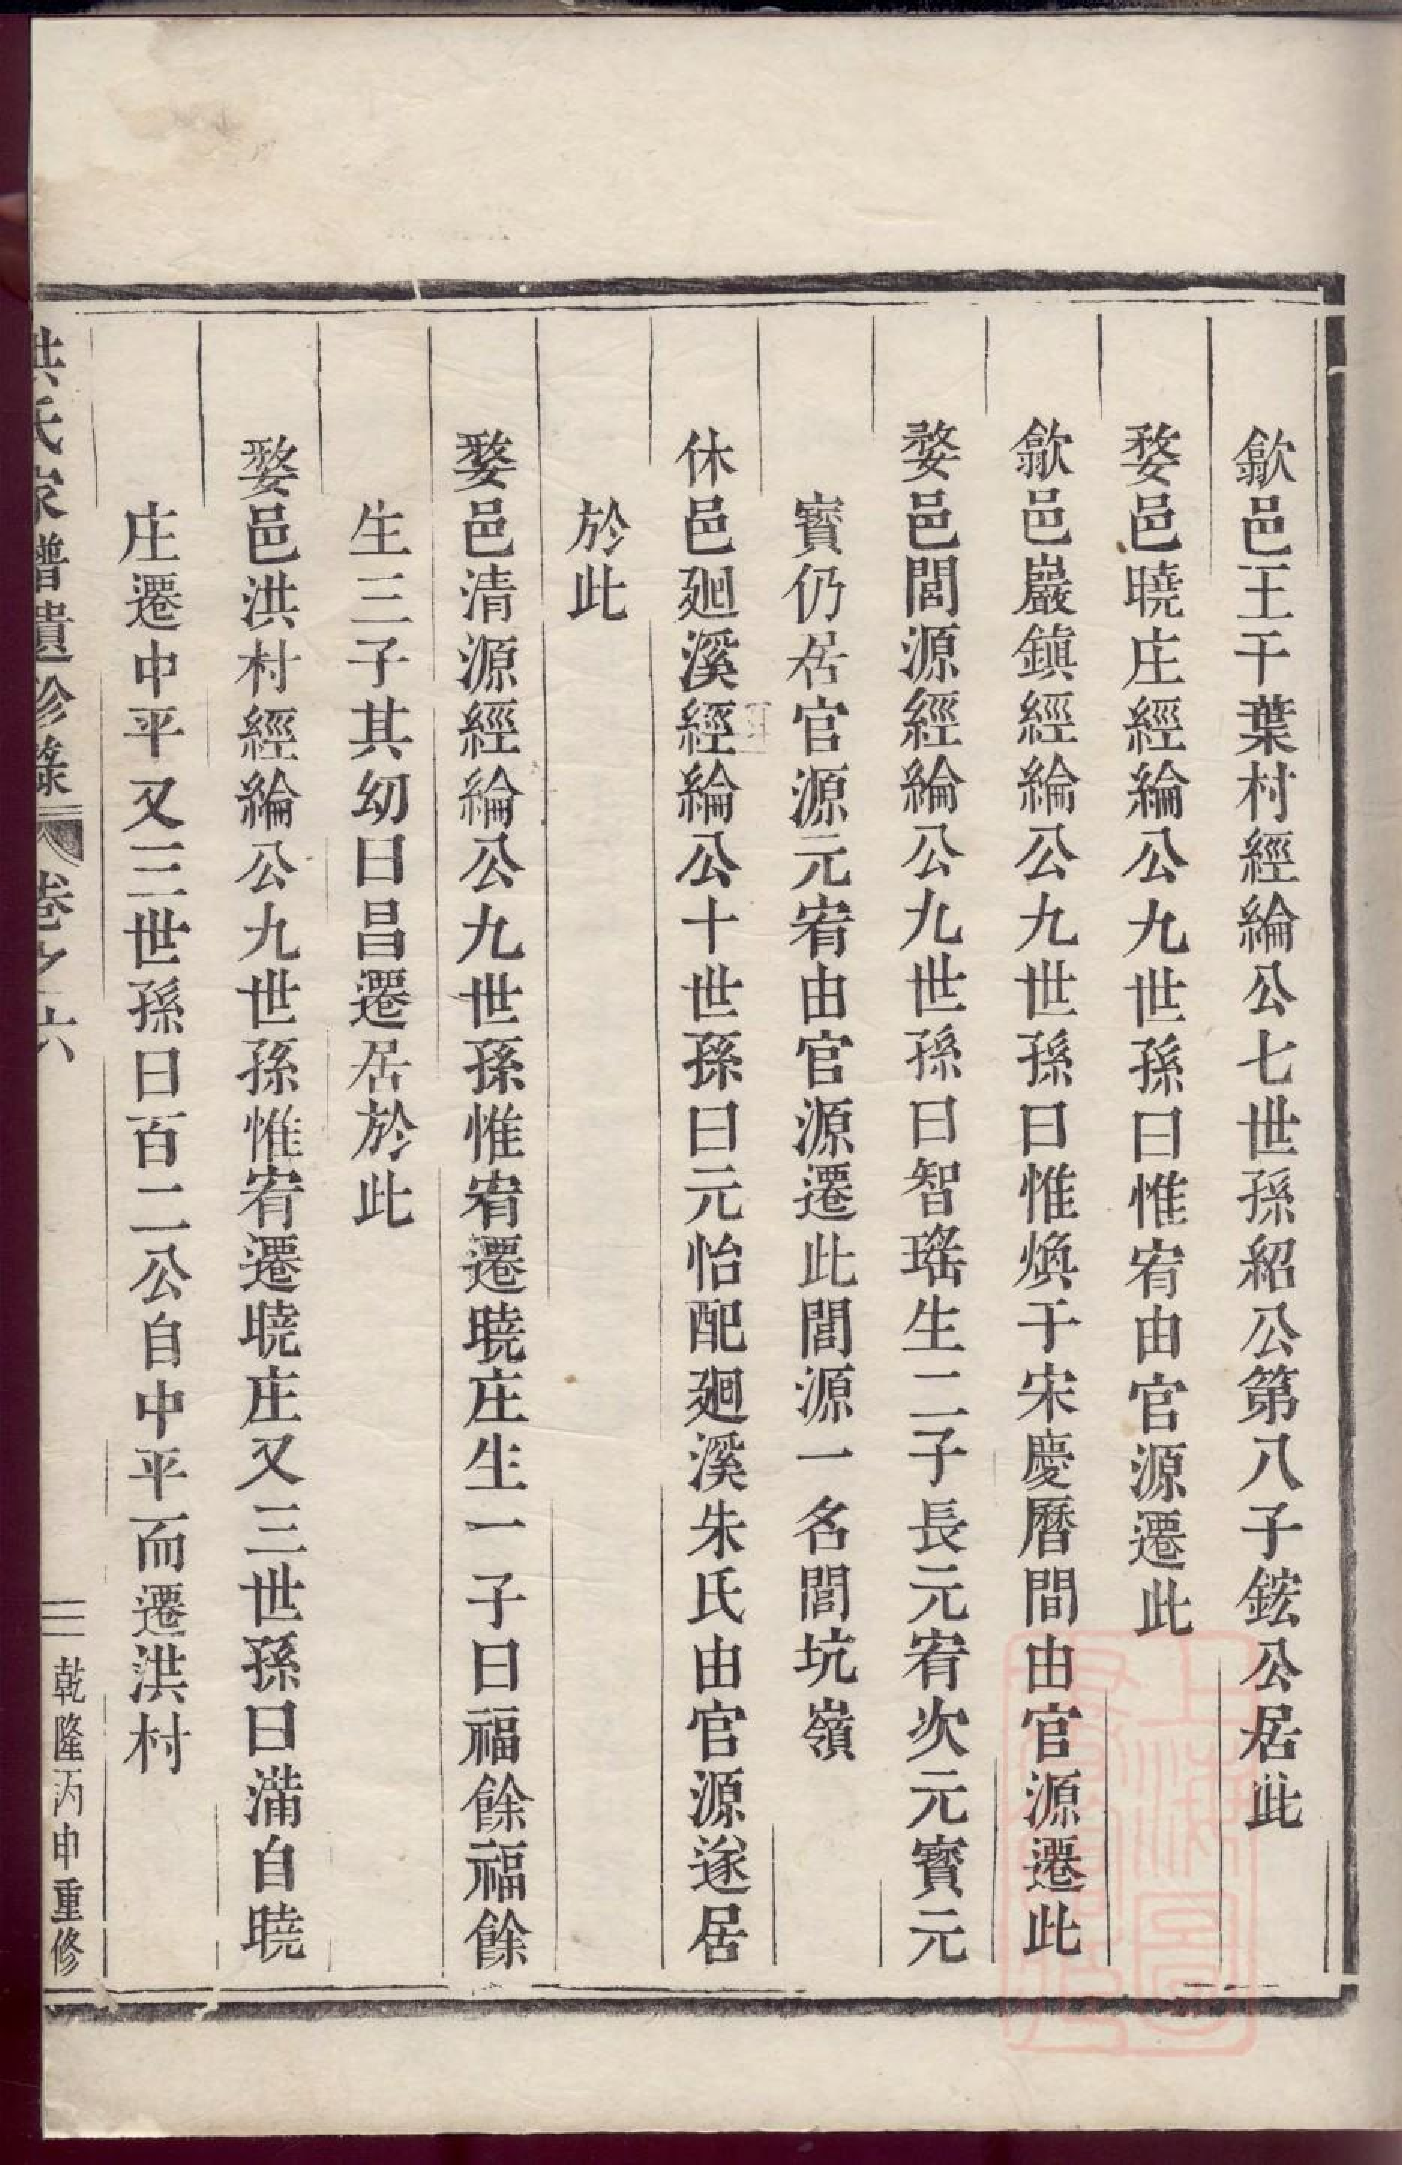 歙邑王干葉村經綸公七世孫紹公第八子鋐公居此
婺邑曉庄經綸公九世孫曰惟宥由官源遷此
歙邑巖鎮經綸公九世孫曰惟煥于宋慶曆間由官源遷此
婺邑閭源經綸公九世孫曰智瑤生二子長元宥次元寶元
寶仍居官源元宥由官源遷此閭源一名閭坑嶺
休邑廻溪經綸公十世孫曰元怡配廻溪朱氏由官源遂居
於此
婺邑清源經綸公九世孫惟宥遷曉庄生一子曰福餘福餘
生三子其幼曰昌遷居於此
婺邑洪村經綸公九世孫惟宥遷曉庄又三世孫曰滿自曉
庄遷中平又三世孫曰百二公自中平而遷洪村
洪氏家譜遺珍錄 卷之六 三 乾隆丙申重修
上海圖書館藏